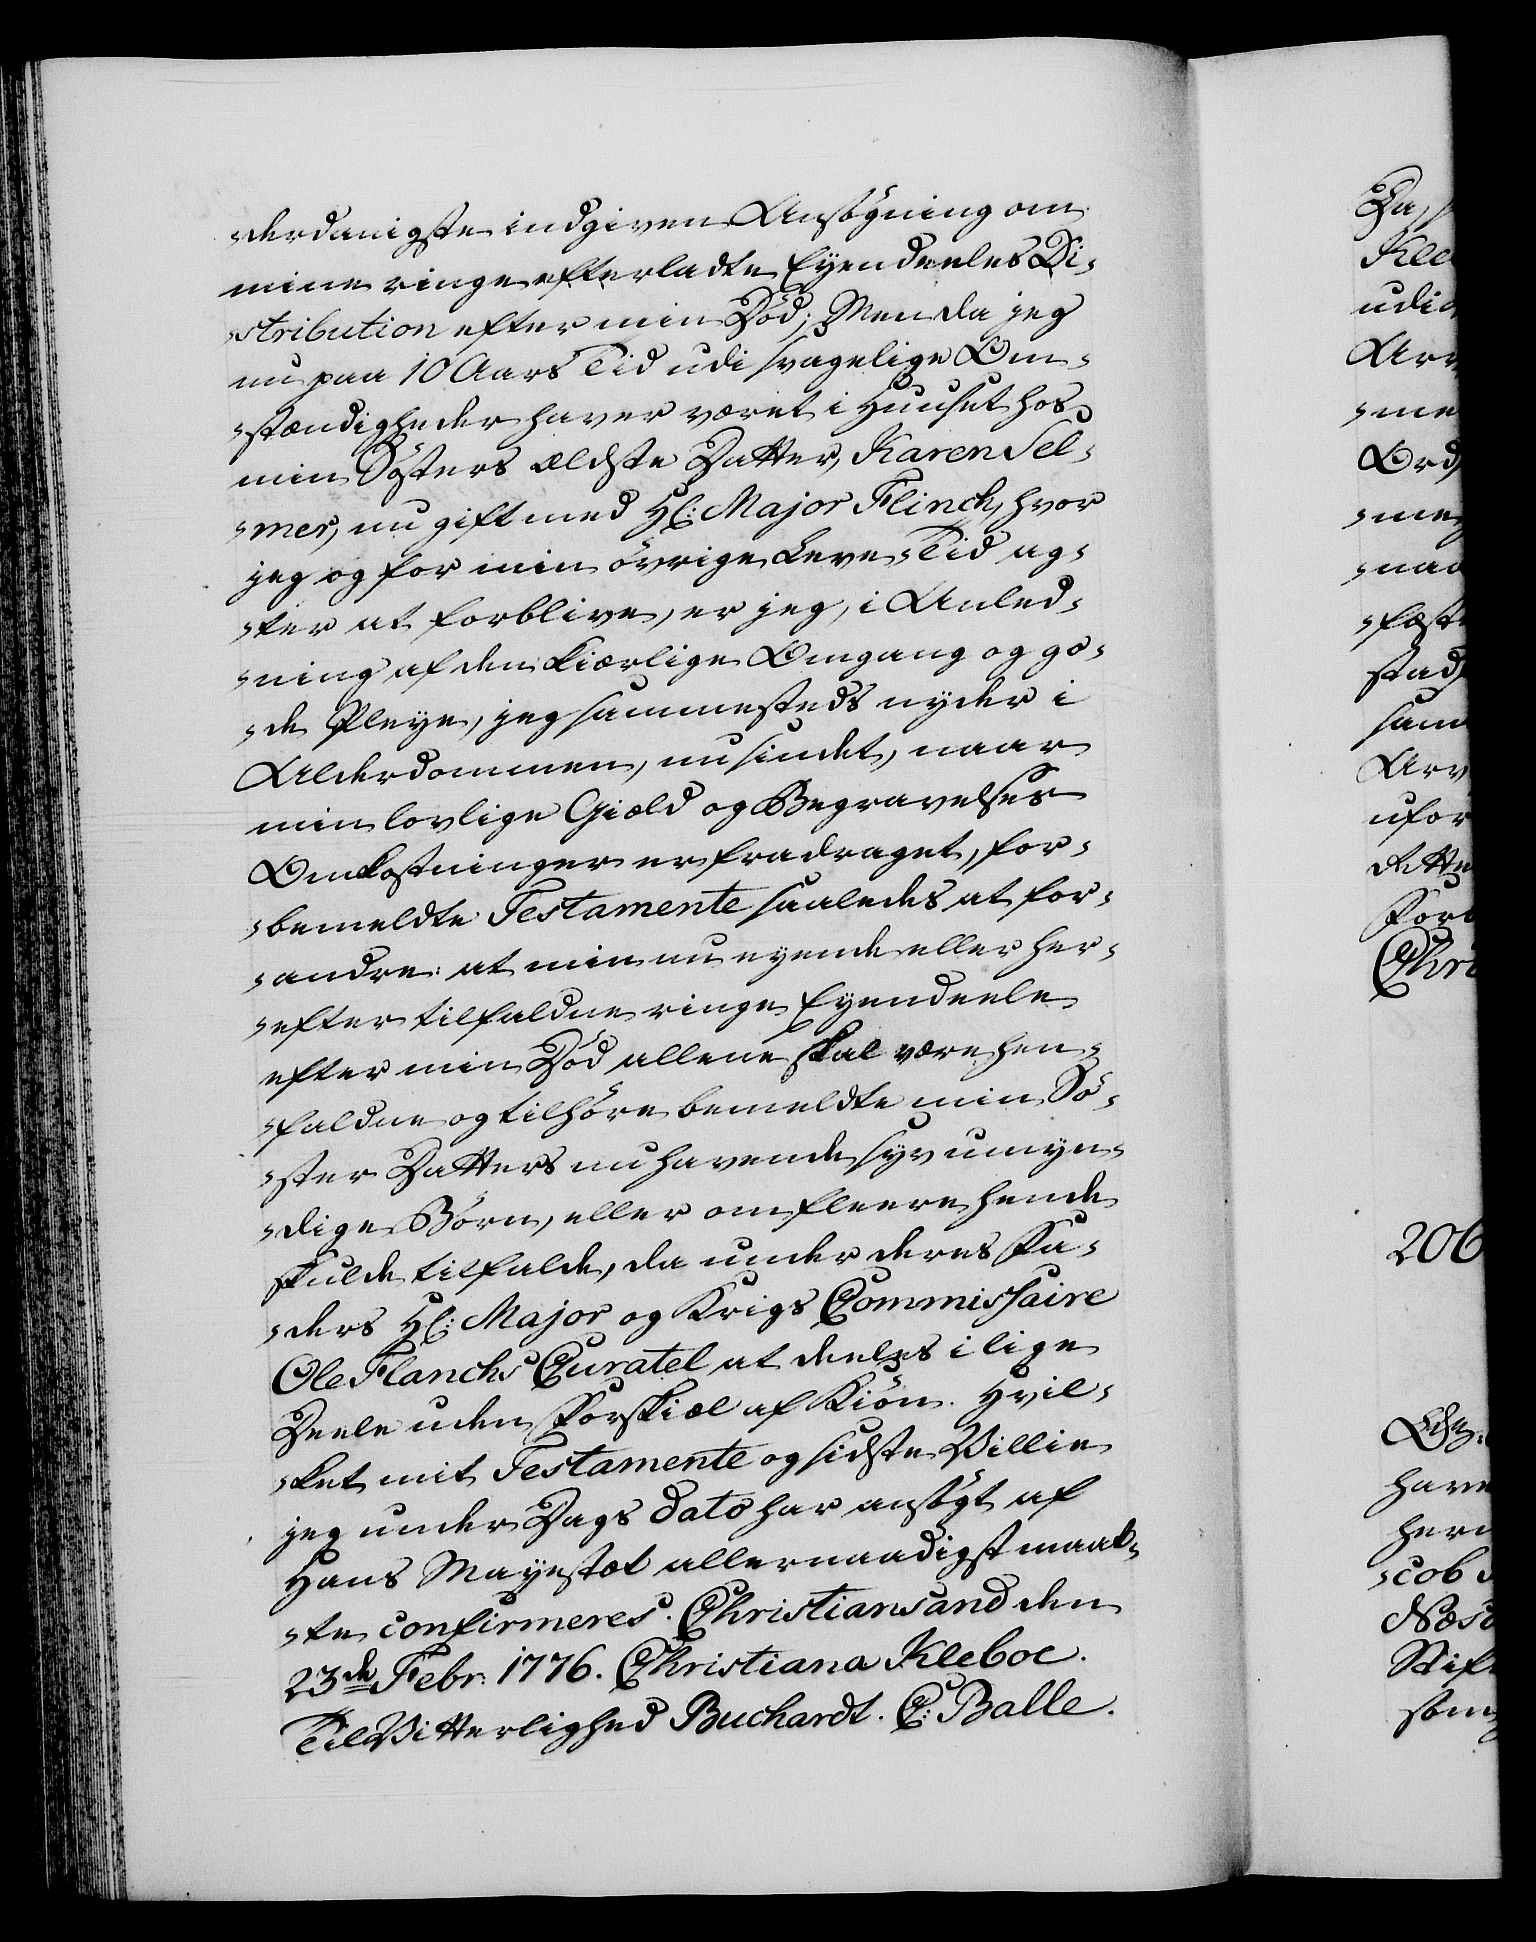 derdanigste indgiven Ansögning om
mine ringe efterladte Eyendeeles Di-
stribution efter min Död; Men da jeg
nu paa 10 Aars Tid udi svagelige Om-
stændigheder haver været i Huuset hos
min Sösters ældste Datter, Karen Sel-
mer, nu gift med Hl: Major Flinch, hvor
jeg og for min övrige Leve-Tid ag-
ter at forblive, er jeg, i Anled-
ning af den kiærlige Omgang og go-
de Pleye, jeg sammesteds nyder i
Alderdommen, nu sindet, naar
min lovlige Giæld og Begravelses
Omkostninger er fradraget, for-
bemeldte Testamente saaledes at for-
andre: at min nu eyende eller her-
efter tilfaldne ringe Eyendeele
efter min Död allene skal være hen-
faldne og tilhöre bemeldte min Sö-
ster Datters nu havende syv umyn-
dige Börn, eller om fleere hende
skulde tilfalde, da under deres Fa-
ders Hl: Major og Krigs Commissaire
Ole Flanchs Curatel at deeles i lige
Deele uden Forskiæl af Kiön. Hvil-
ket mit Testamente og sidste Villie
jeg under Dags Dato har ansögt af
Hans Mayestæt allernaadigst maat-
te confirmeres. Christiansand den
23de Febr: 1776. Christiana Kleboe.
Til Vitterlighed Buchardt. C: Balle.
206